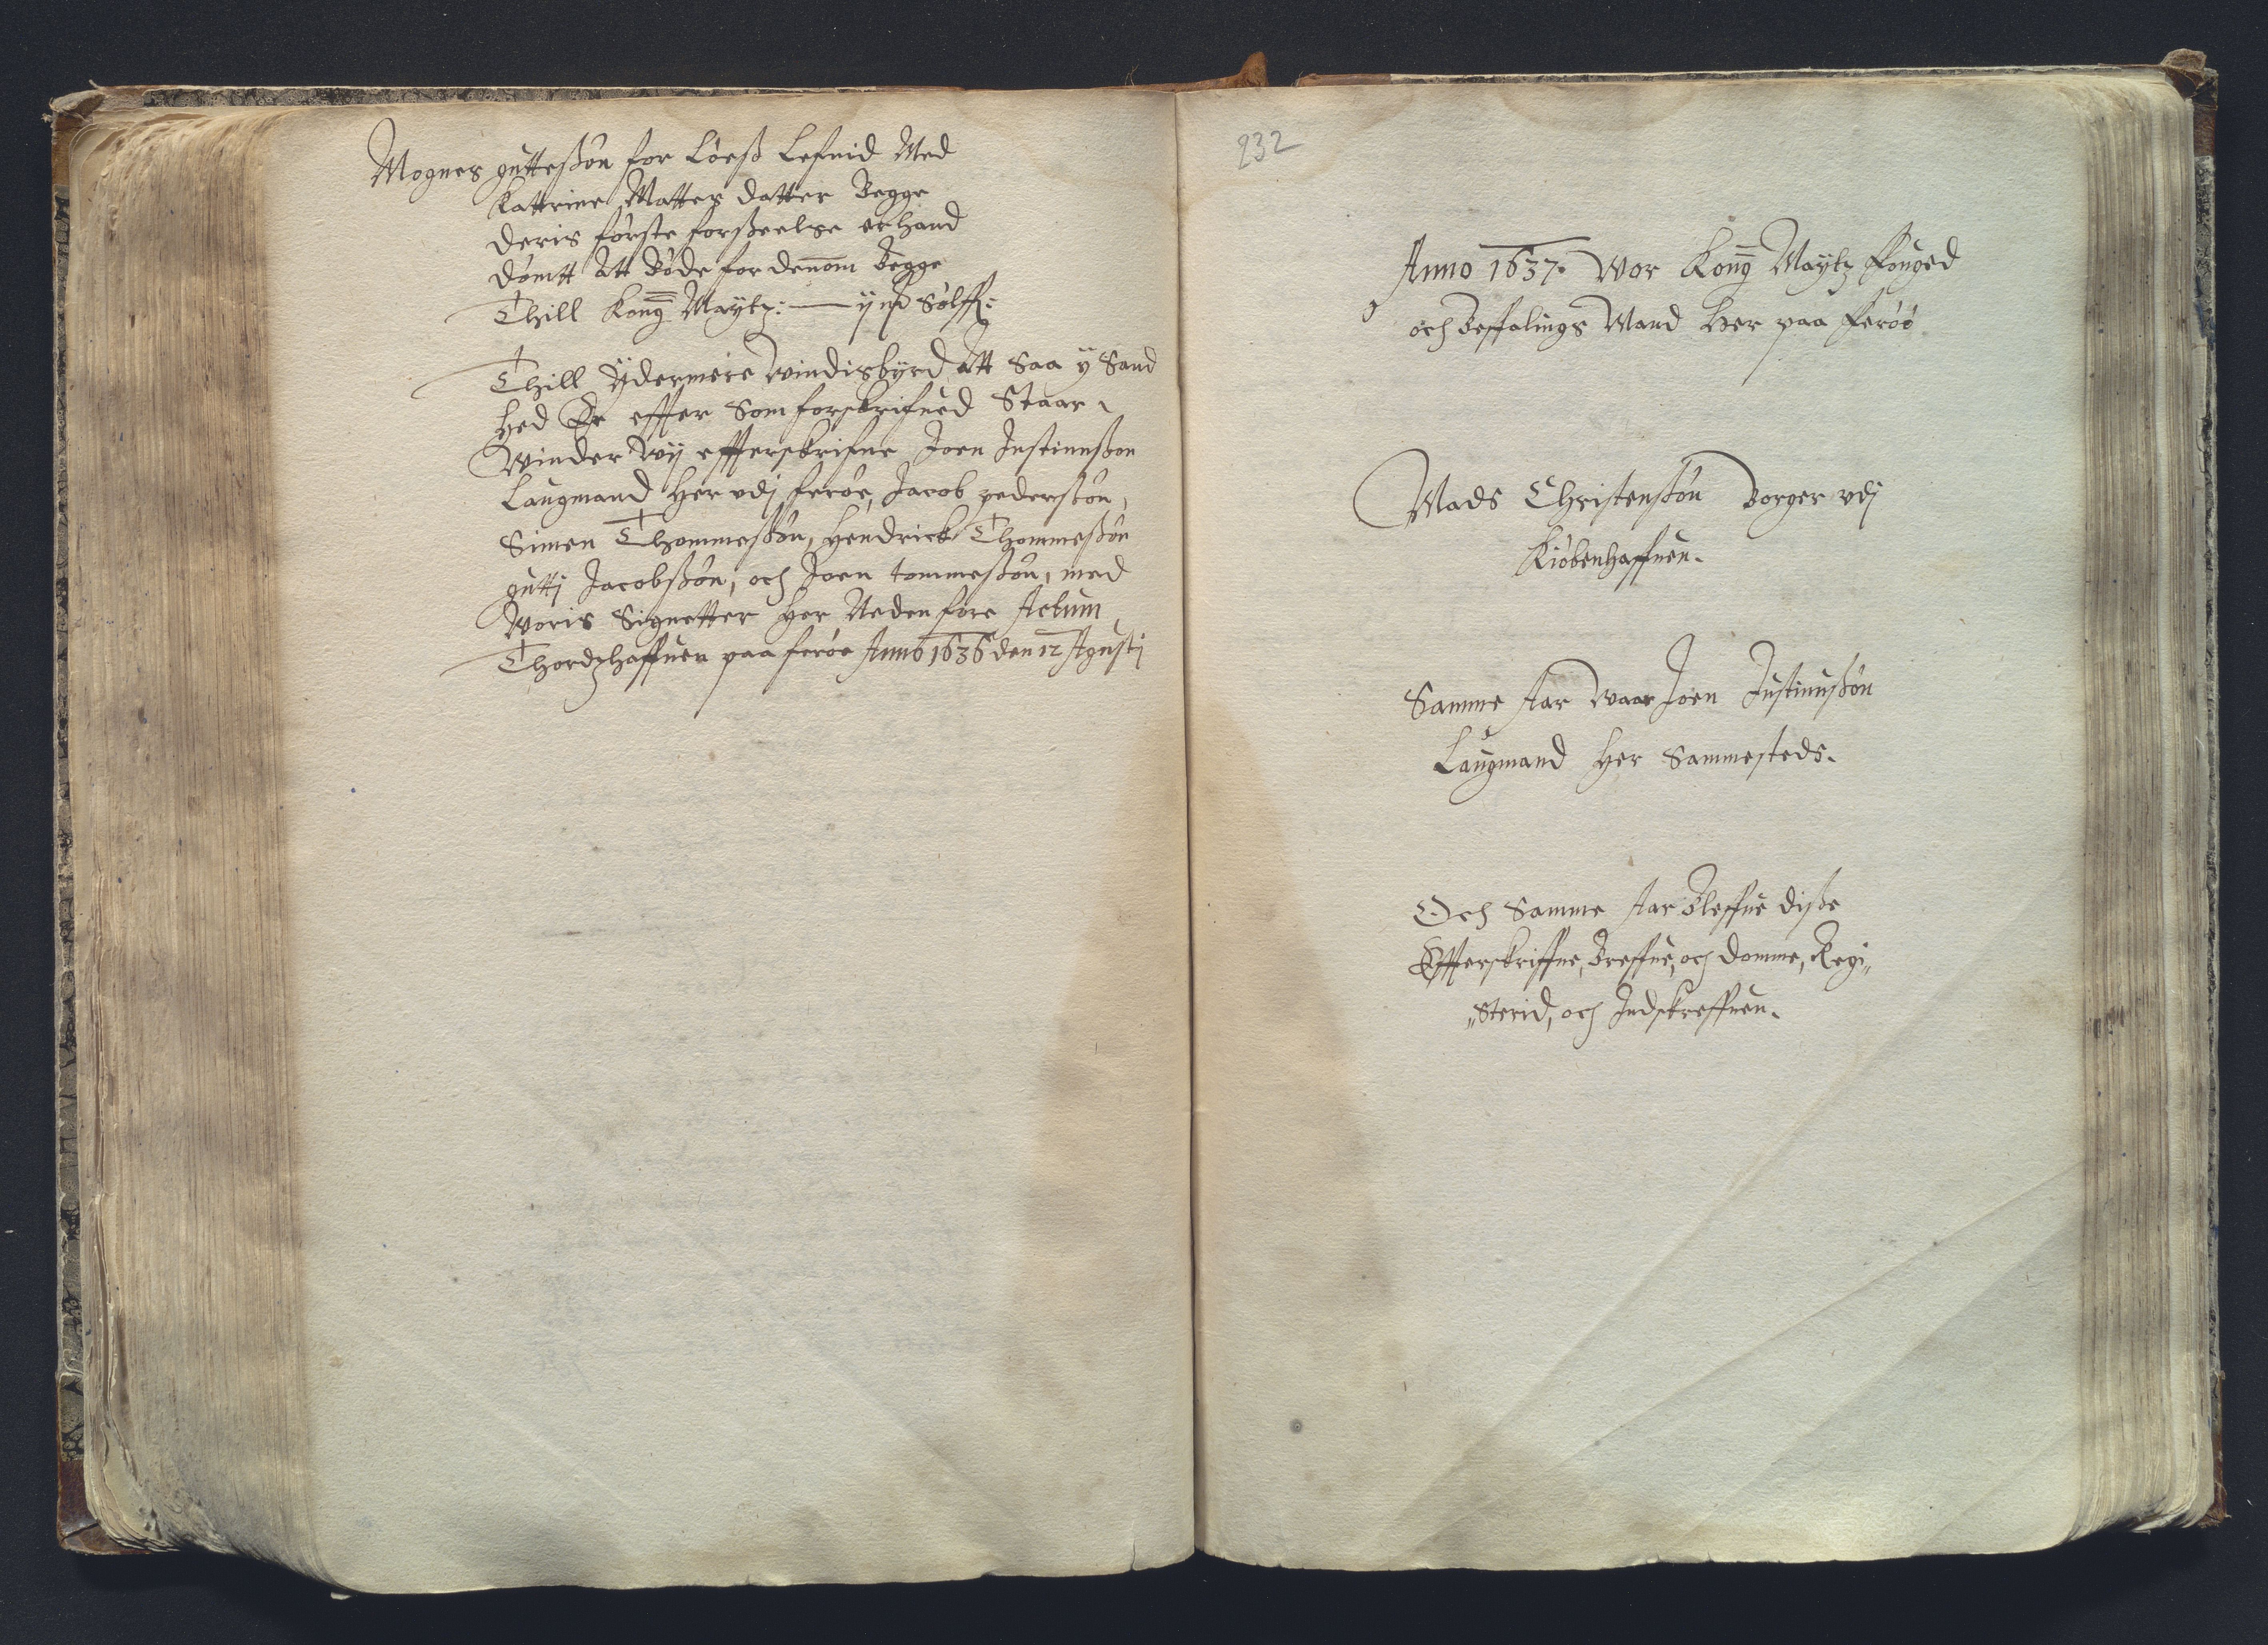 Mognes guttesßøn for Løesß Lefnid Med
Kattrine Matters datter Begge
deris første forsßeelse er hand
dømtt Att Bøde for dennom Begge
Thill Kong Maytz: — ij mk Sølff:
Thill Ydermere Windisbyrd Att Saa y Sand
hed Er effter Som forskrifued Staar
Winder Wij effterskrifne Joen Justinusßon
Laugmand Her vdj ferøe, Jacob pedersßøn,
Simen Thommesßøn, Hendrick Thommesßøn
gutti Jacobsßøn, och Joen tommesßøn, med
Woris Signetter Her Nedenføre Actum
Thordzhaffuen paa ferøe Anno 1636 den 12 Agustj
232
Anno 1637. Wor Kong Maytz Fouged
och Beffalings Mand Her paa Ferøe
Mads Christensßøn Borger vdj
Kiøbenhaffuen.
Samme Aar Waar Joen Justinusßøn
Laugmand Her Sammesteds.
Och Samme Aar Bleffue disße
Effterskriffne, Breffue, och Domme, Regi„
„Sterid, och Indskreffuen.